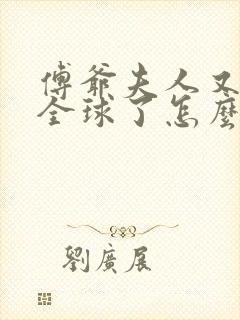 傅爺夫人又
全球了怎麼
劉廣展